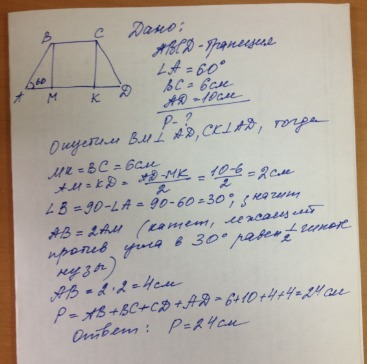 Дано:
ABCD - трапеция
∠A = 60°
BC = 6см
AD = 10см
P - ?
B C
A 60 M K D
Опустим BM⊥AD, CK⊥AD, тогда
MK = BC = 6см
AM = KD = (AD - MK)/2 = (10-6)/2 = 2см
∠B = 90 - ∠A = 90 - 60 = 30°, значит
AB = 2AM (катет, лежащий
против угла в 30° равен 1/2 гипоте
нузы)
AB = 2 · 2 = 4см
P = AB + BC + CD + AD = 6 + 10 + 4 + 4 = 24см
Ответ: P = 24см